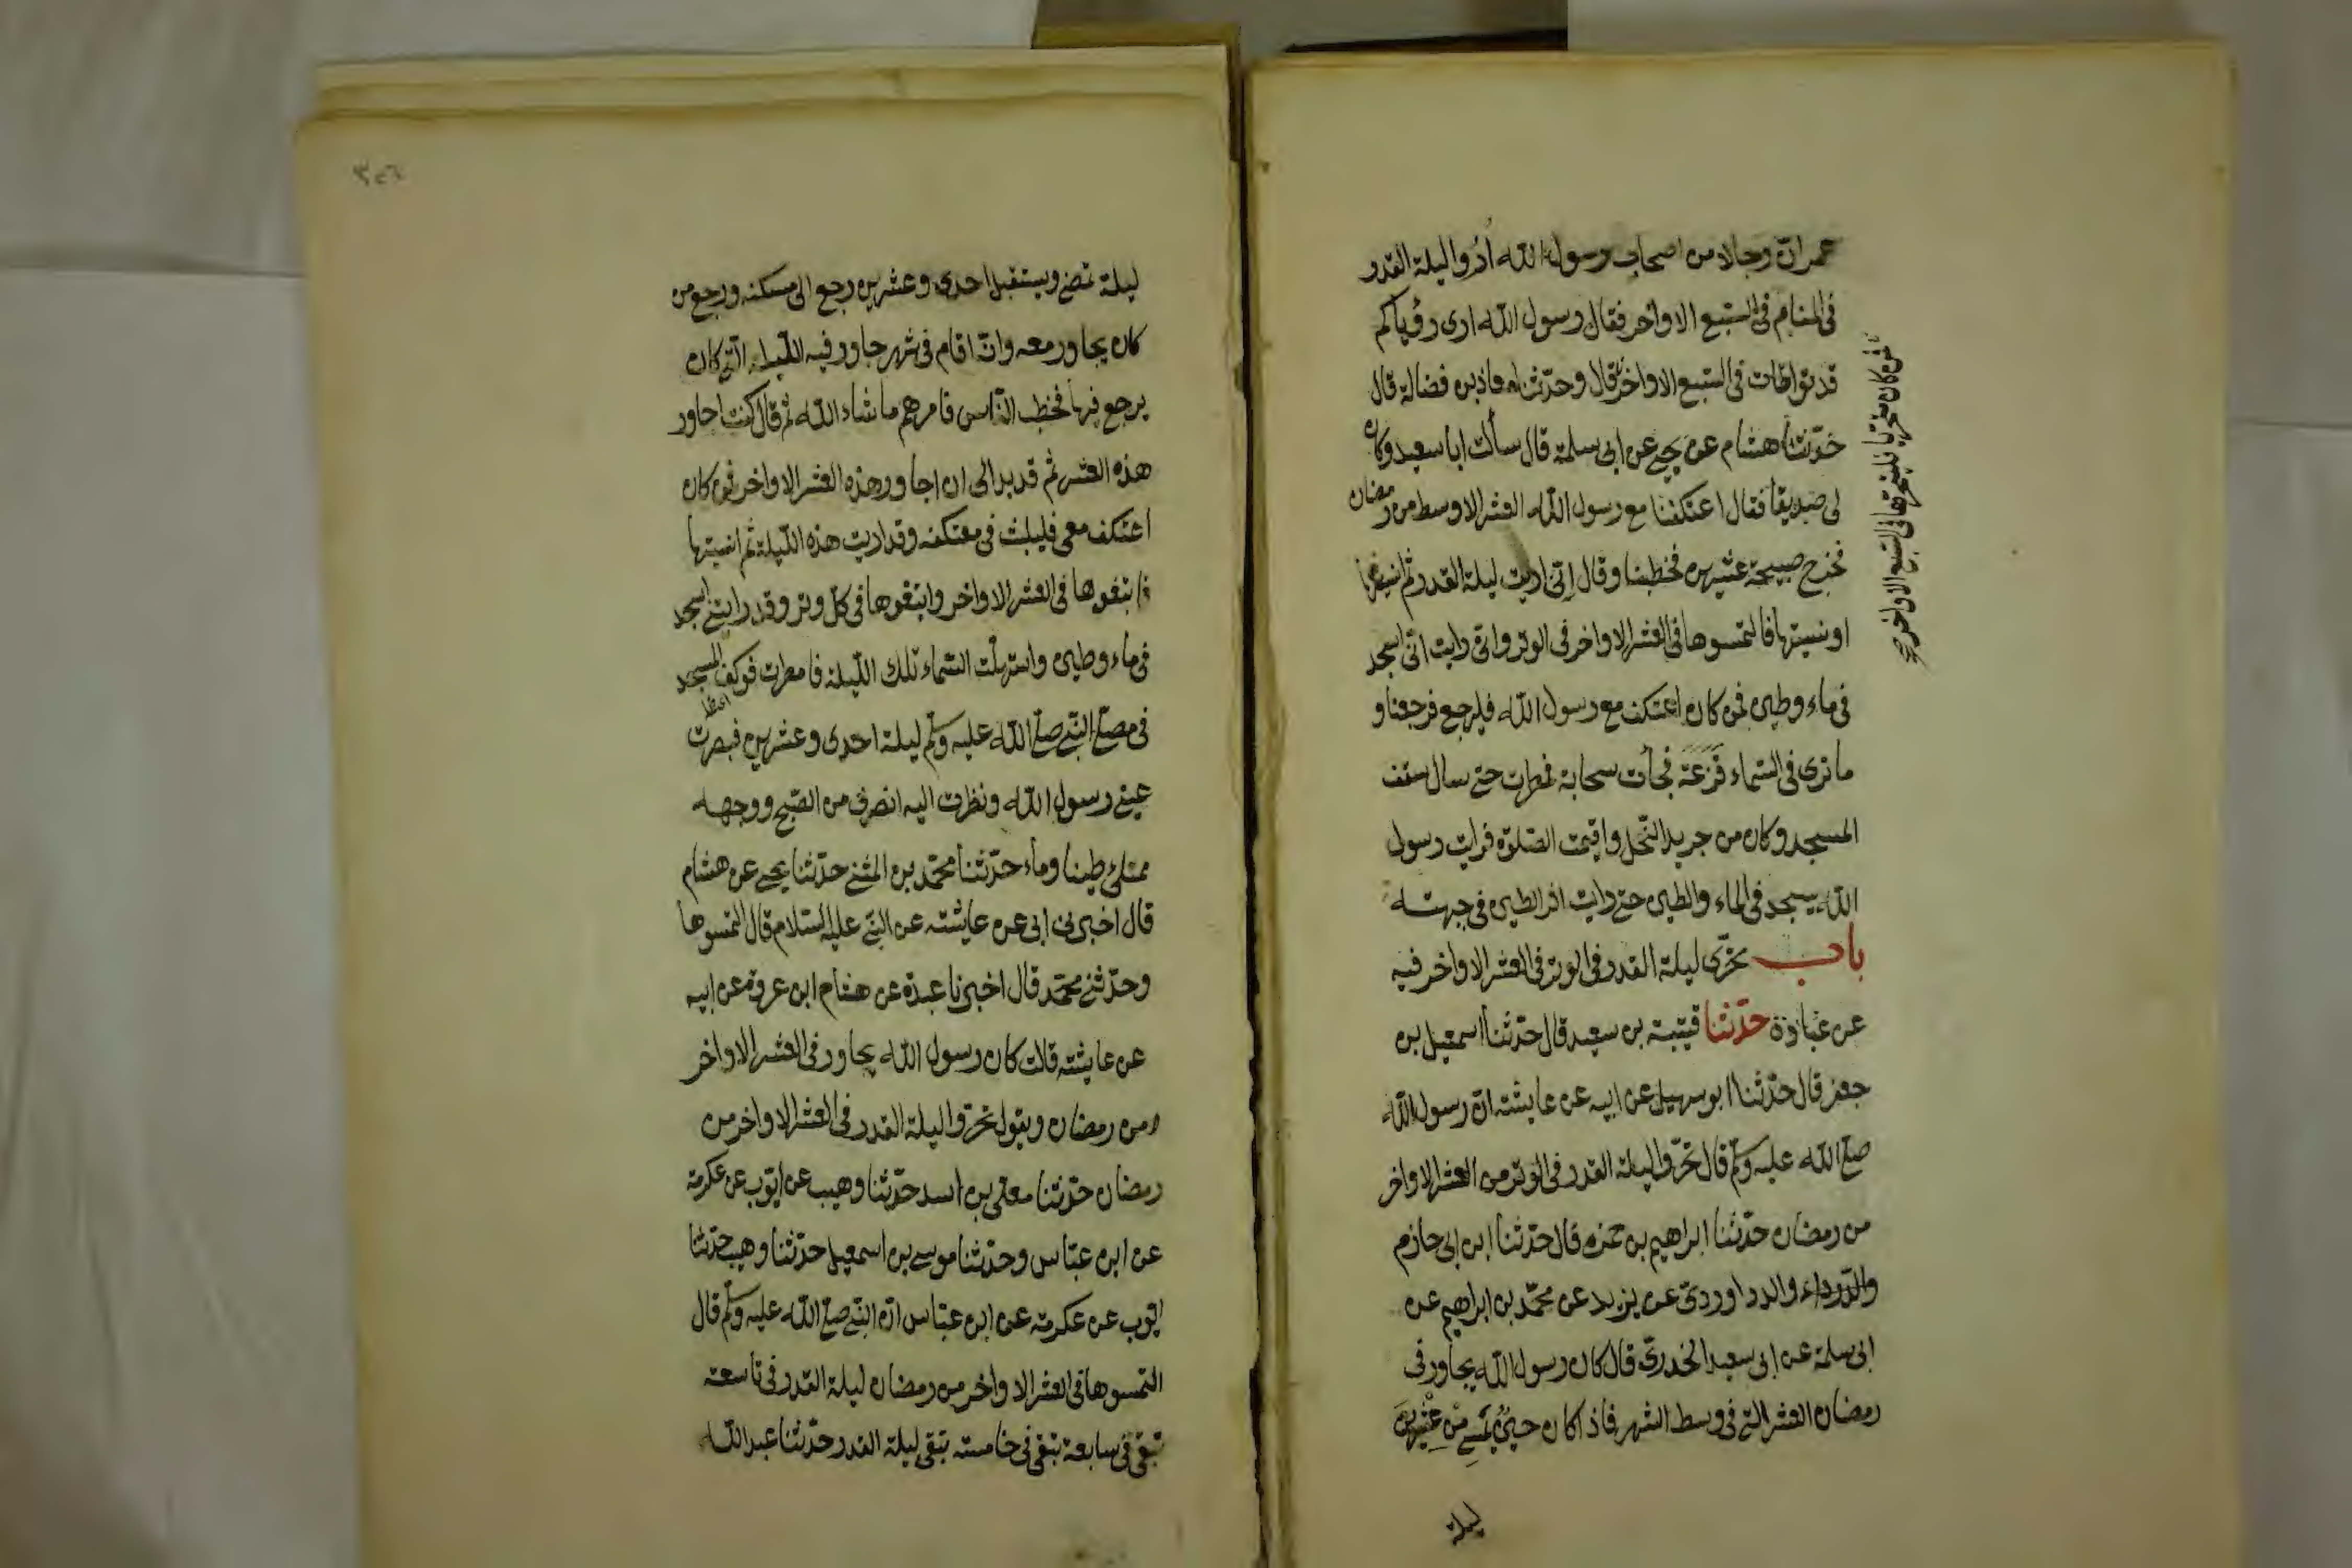 عمر ان رجالا من اصحاب رسول الله اُرُوا ليلة القدر
فى المنام فى السّبع الاواخر فقال رسول الله ارى رؤياكم
قد تواطات فى السّبع الاواخر قال وحدّثنا معاذ بن فضالة قال
فمن كان متحريا فليتحرها فى السبع الاواخر صح
حدّثنا هشام عن يحيى عن ابى سلمة قال سألت ابا سعيد وكان
لى صديقا فقال اعتكفنا مع رسول الله العشر الاوسط من رمضان
فخرج صبيحة عشرين فخطبنا وقال انّى اريت ليلة القدر ثم انسيتها
او نسيتها فالتمسوها فى العشر الاواخر فى الوتر وانّى رايت انّى اسجد
فى ماء وطين فمن كان اعتكف مع رسول الله فليرجع فرجعنا و
ما نرى فى السّماء قَزَعَة فجأت سحابة فمطرت حتى سال سقف
المسجد وكان من جريد النّخل واقيمت الصّلوة فرايت رسول
الله يسجد فى الماء والطين حتى رايت اثر الطين فى جبهته
باب تحرّى ليلة القدر فى الوتر فى العشر الاواخر فيه
عن عبادة حدّثنا قتيبة بن سعيد قال حدّثنا اسمعيل بن
جعفر قال حدّثنا ابو سهيل عن ابيه عن عايشة انّ رسول الله
صلّى الله عليه وسلّم قال تحرّوا ليلة القدر فى الوتر من العشر الاواخر
من رمضان حدّثنا ابراهيم بن حمزة قال حدّثنا ابن ابى حازم
والدرداء والدراوردىّ عن يزيد عن محمّد بن ابراهيم عن
ابى سلمة عن ابى سعيد الخدرىّ قال كان رسول الله يجاور فى
رمضان العشر التى فى وسط الشهر فاذا كان حين يُمسى من عشرين
ليلة
٣٥٦
ليلة تمضى ويستقبل احدى وعشرين رجع الى مسكنه ورجع من
كان يجاور معه وانّه اقام فى شهر جاور فيه اللّيلة الّتى كان
يرجع فيها فخطب النّاس فامرهم ما شاء الله ثم قال كنت اجاور
هذه العشر ثم قد بدا لى ان اجاور هذه العشر الاواخر فمن كان
اعتكف معى فليلبث فى معتكفه وقد اريت هذه اللّيلة ثم انسيتها
فابتغوها فى العشر الاواخر وابتغوها فى كلّ وتر وقد رايتنى اسجد
فى ماء وطين واستهلّت السّماء تلك اللّيلة فامطرت فوكف المسجد
فى مصلّى النّبى صلّى الله عليه وسلّم ليلة احدى وعشرين فبصرت
عينى رسول الله ونظرت اليه انصرف من الصّبح ووجهه
ممتلئ طينا وماء حدّثنا محمّد بن المثنى حدّثنا يحيى عن هشام
قال اخبرنى ابى عن عايشة عن النّبى عليه السّلام قال التمسوها
وحدّثنى محمّد قال اخبرنا عبدة عن هشام ابن عروة عن ابيه
عن عايشة قالت كان رسول الله يجاور فى العشر الاواخر
من رمضان ويقول تحرّوا ليلة القدر فى العشر الاواخر من
رمضان حدّثنا معلّى بن اسد حدّثنا وهيب عن ايّوب عن عكرمة
عن ابن عبّاس وحدّثنا موسى بن اسمعيل حدّثنا وهيب حدّثنا
ايّوب عن عكرمة عن ابن عبّاس انّ النّبى صلّى الله عليه وسلّم قال
التمسوها فى العشر الاواخر من رمضان ليلة القدر فى تاسعة
تبقى فى سابعة تبقى فى خامسة تبقى ليلة القدر حدّثنا عبد الله